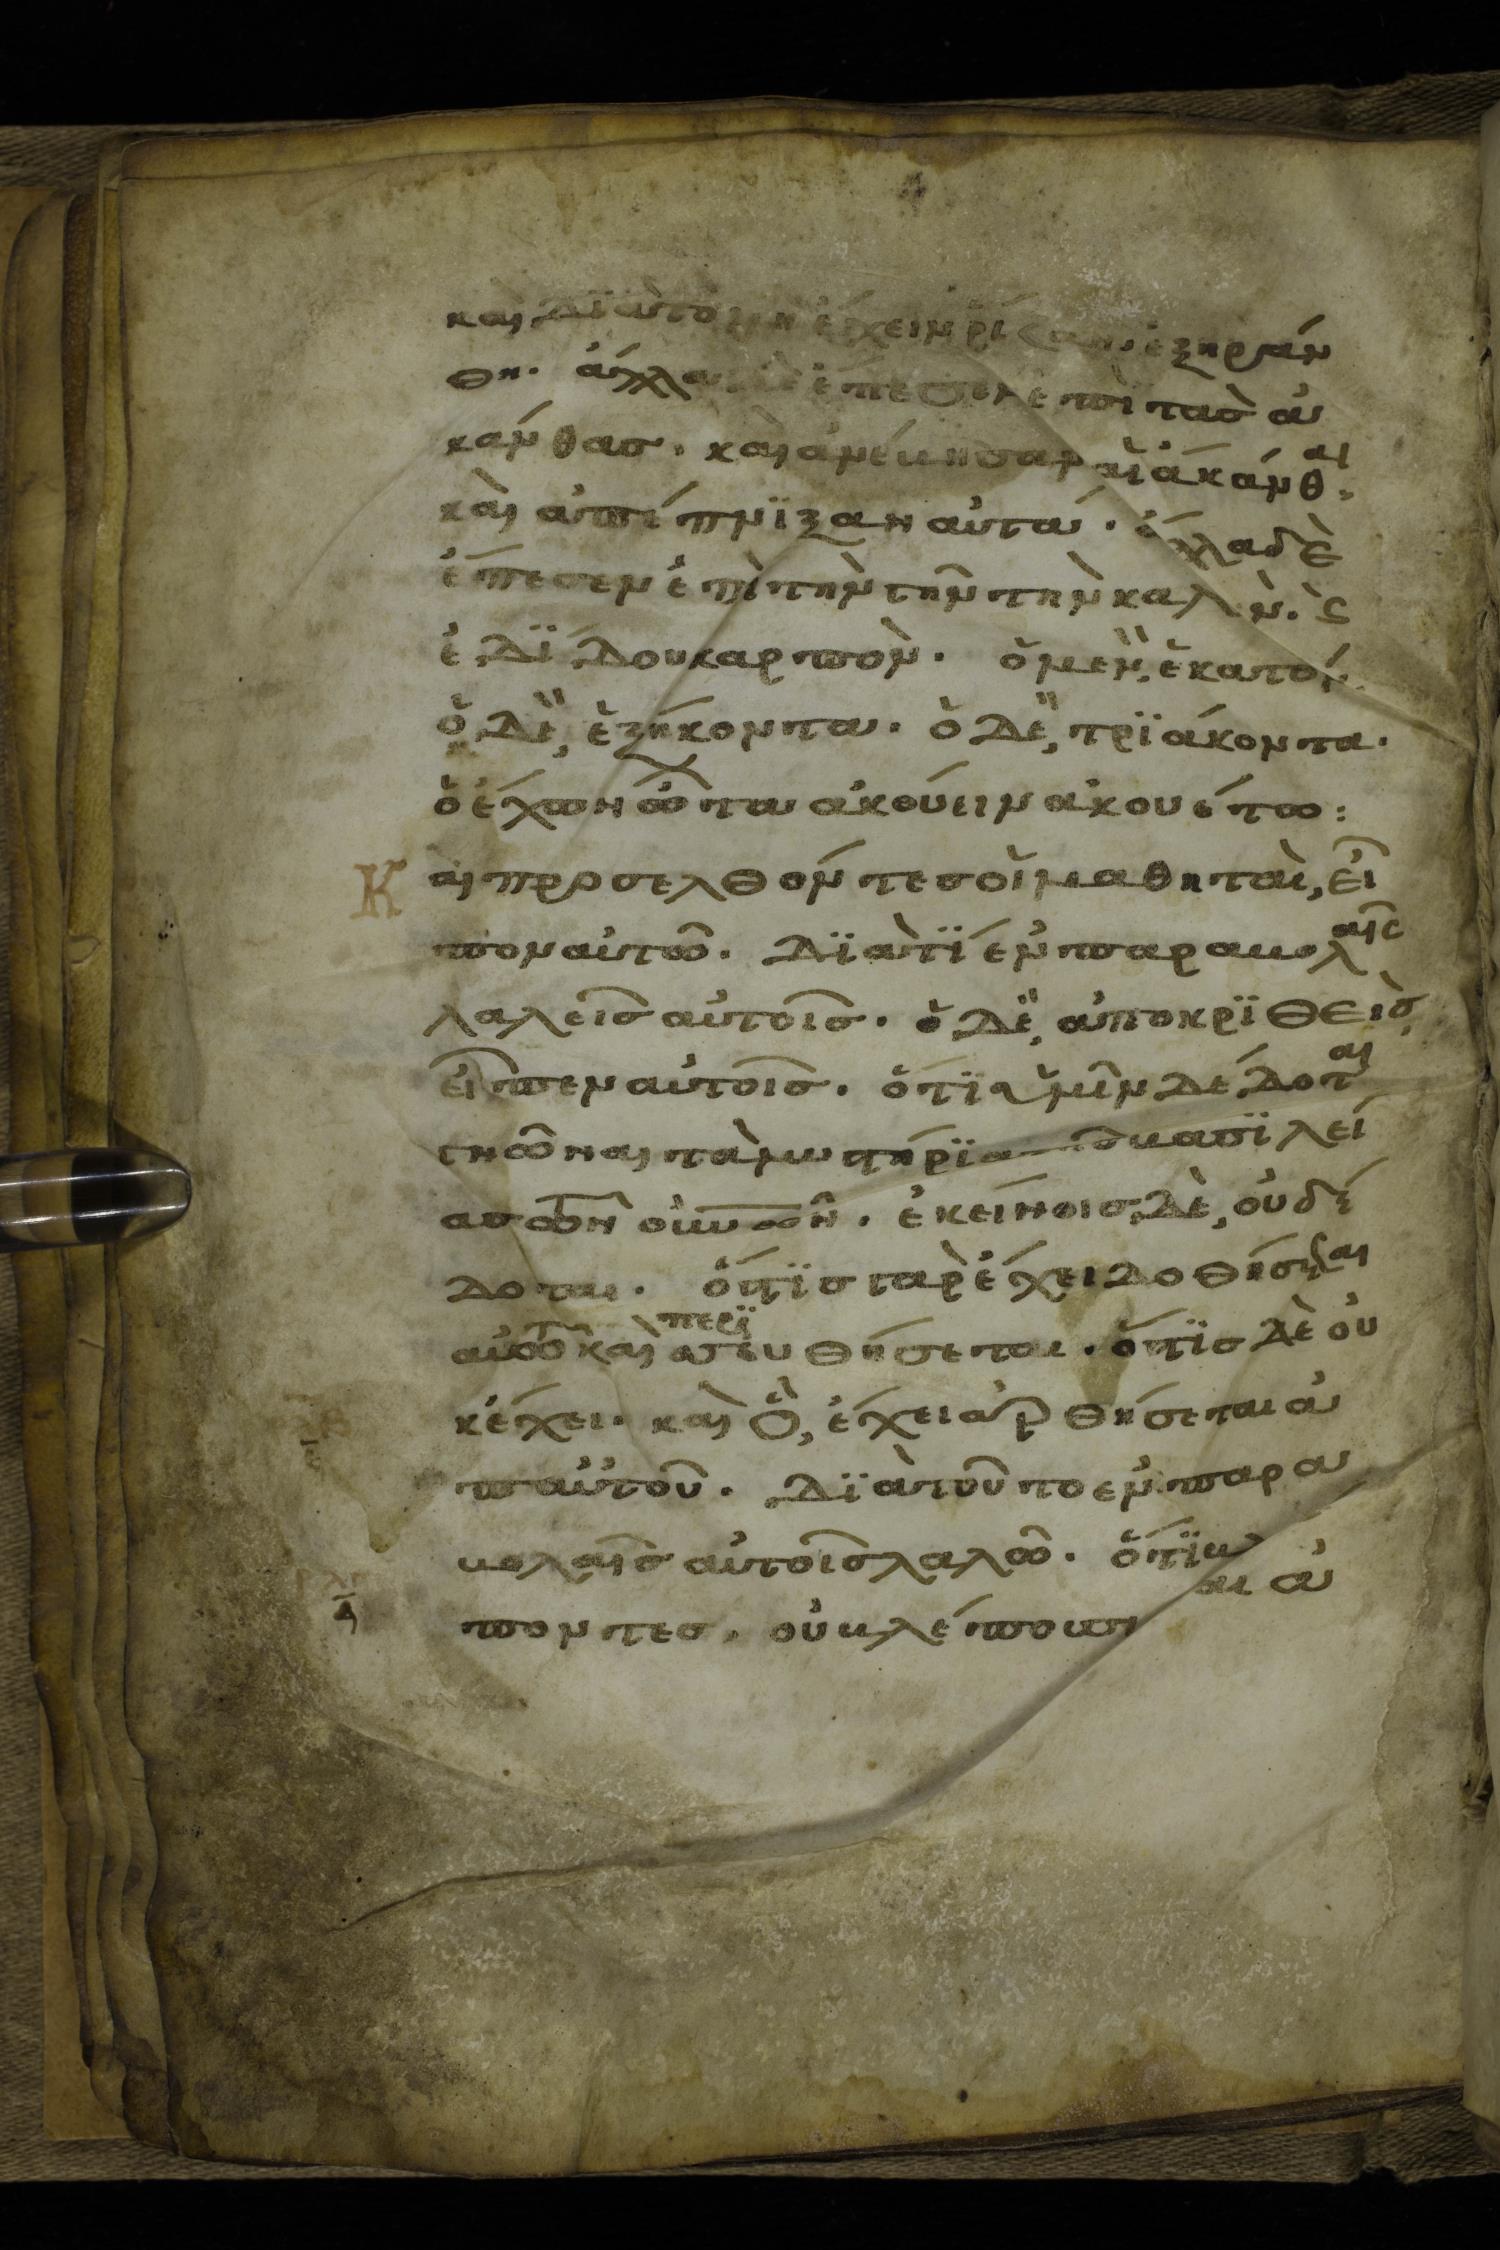 καὶ διὰ τὸ μὴ ἔχειν ῥίζαν, ἐξηράν
θη. ἄλλα δὲ ἔπεσεν ἐπὶ τὰσ ἀ
κάνθασ. καὶ ἀνέβησαν αἱ ἄκανθαι
καὶ ἀπέπνιξαν αὐτά. ἄλλα δὲ
ἔπεσεν ἐπὶ τὴν γῆν τὴν καλὴν. ϛ
ἐδίδου καρπὸν. ὃ μὲν, ἑκατόν
ὃ δὲ, ἑξήκοντα. ὃ δὲ, τριάκοντα.
ὁ ἔχων ὦτα ἀκούειν ἀκουέτω:
Καὶ προσελθόντεσ οἱ μαθηταὶ, εἶ
πον αὐτῶ. διατί ἐν παραβολαῖς
λαλεῖσ αὐτοῖσ. ὁ δὲ, ἀποκριθεὶσ,
εἶπεν αὐτοῖσ. ὅτι ὑμῖν δέδοται
γνῶναι τὰ μυστήρια τῆσ βασιλεί
ασ τῶν οὐνῶν. ἐκείνοισ δὲ, οὐ δέ
δοται. ὅστισ γὰρ ἔχει δοθήσεται
αὐτῶ καὶ περισσευθήσεται. ὅστισ δὲ οὐ
κ ἔχει. καὶ ὃ, ἔχει ἀρθήσεται ἀ
π αὐτοῦ. διὰ τοῦτο ἐν παρα
βολαῖσ αὐτοῖσ λαλῶ. ὅτι βλέ
ποντεσ, οὐ βλέπουσι